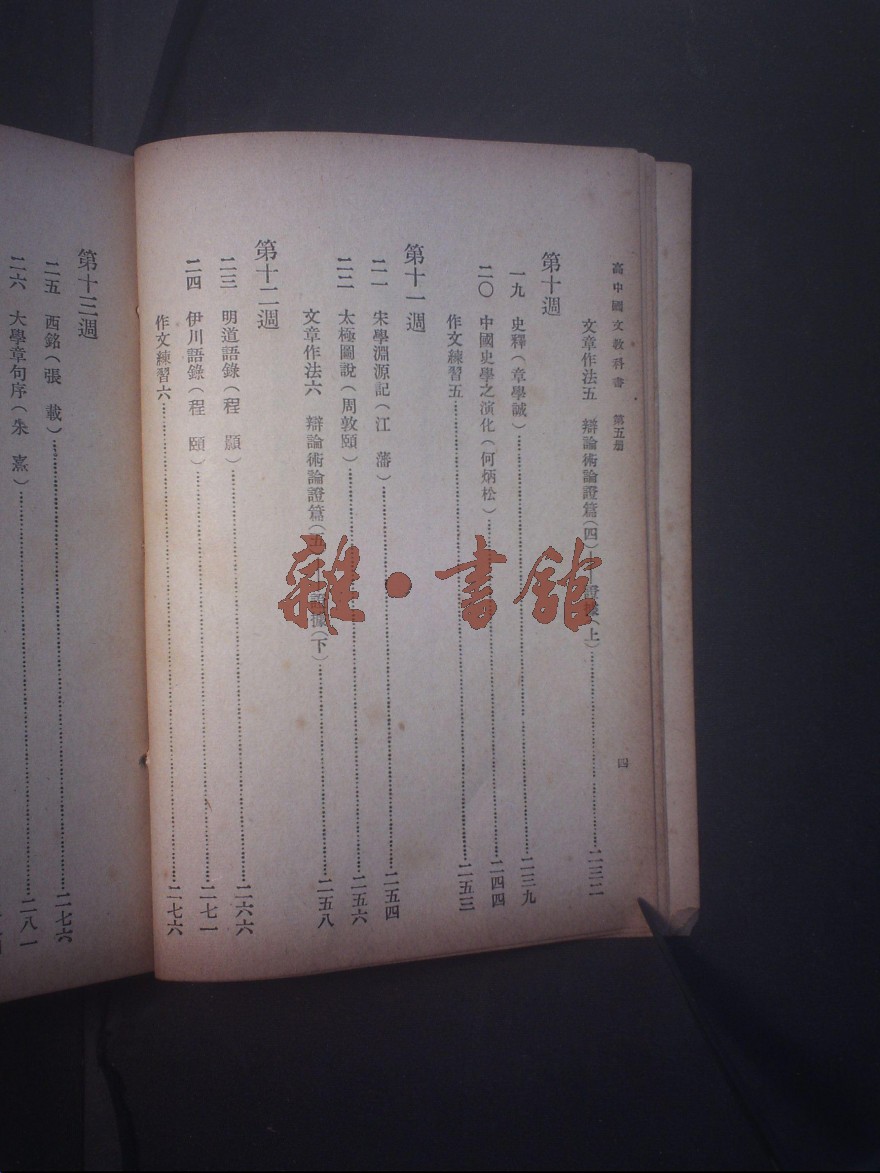 高中國文教科書　第五册
四
文章作法五　辯論術論證篇（四）——證據（上）……二三二
第十週
一九　史釋（章學誠）……二三九
二〇　中國史學之演化（何炳松）……二四四
作文練習五……二五三
第十一週
二一　宋學淵源記（江　藩）……二五四
二二　太極圖說（周敦頤）……二五六
文章作法六　辯論術論證篇（五）——證據（下）……二五八
第十二週
二三　明道語錄（程　顥）……二六六
二四　伊川語錄（程　頤）……二七一
作文練習六……二七六
第十三週
二五　西銘（張　載）……二七六
二六　大學章句序（朱　熹）……二八一
雜・書館